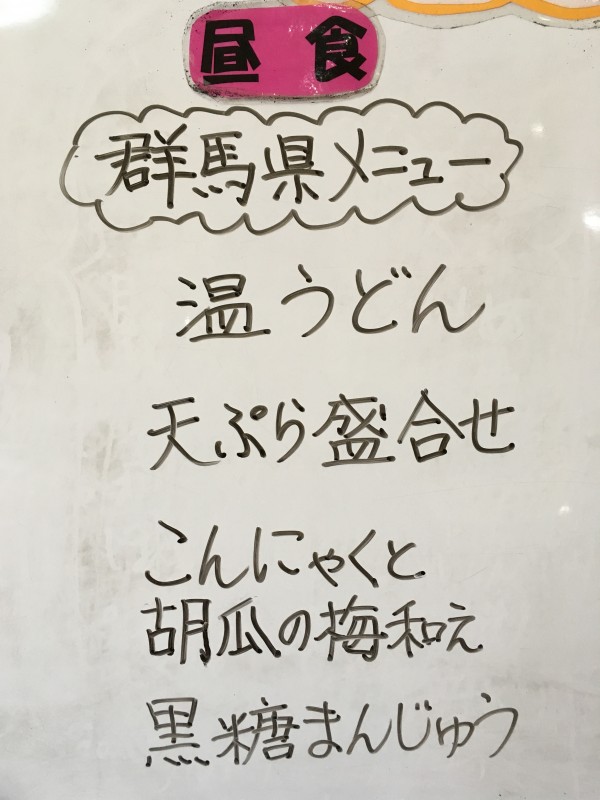 昼食
群馬県メニュー
温うどん
天ぷら盛合せ
こんにゃくと
胡瓜の梅和え
黒糖まんじゅう